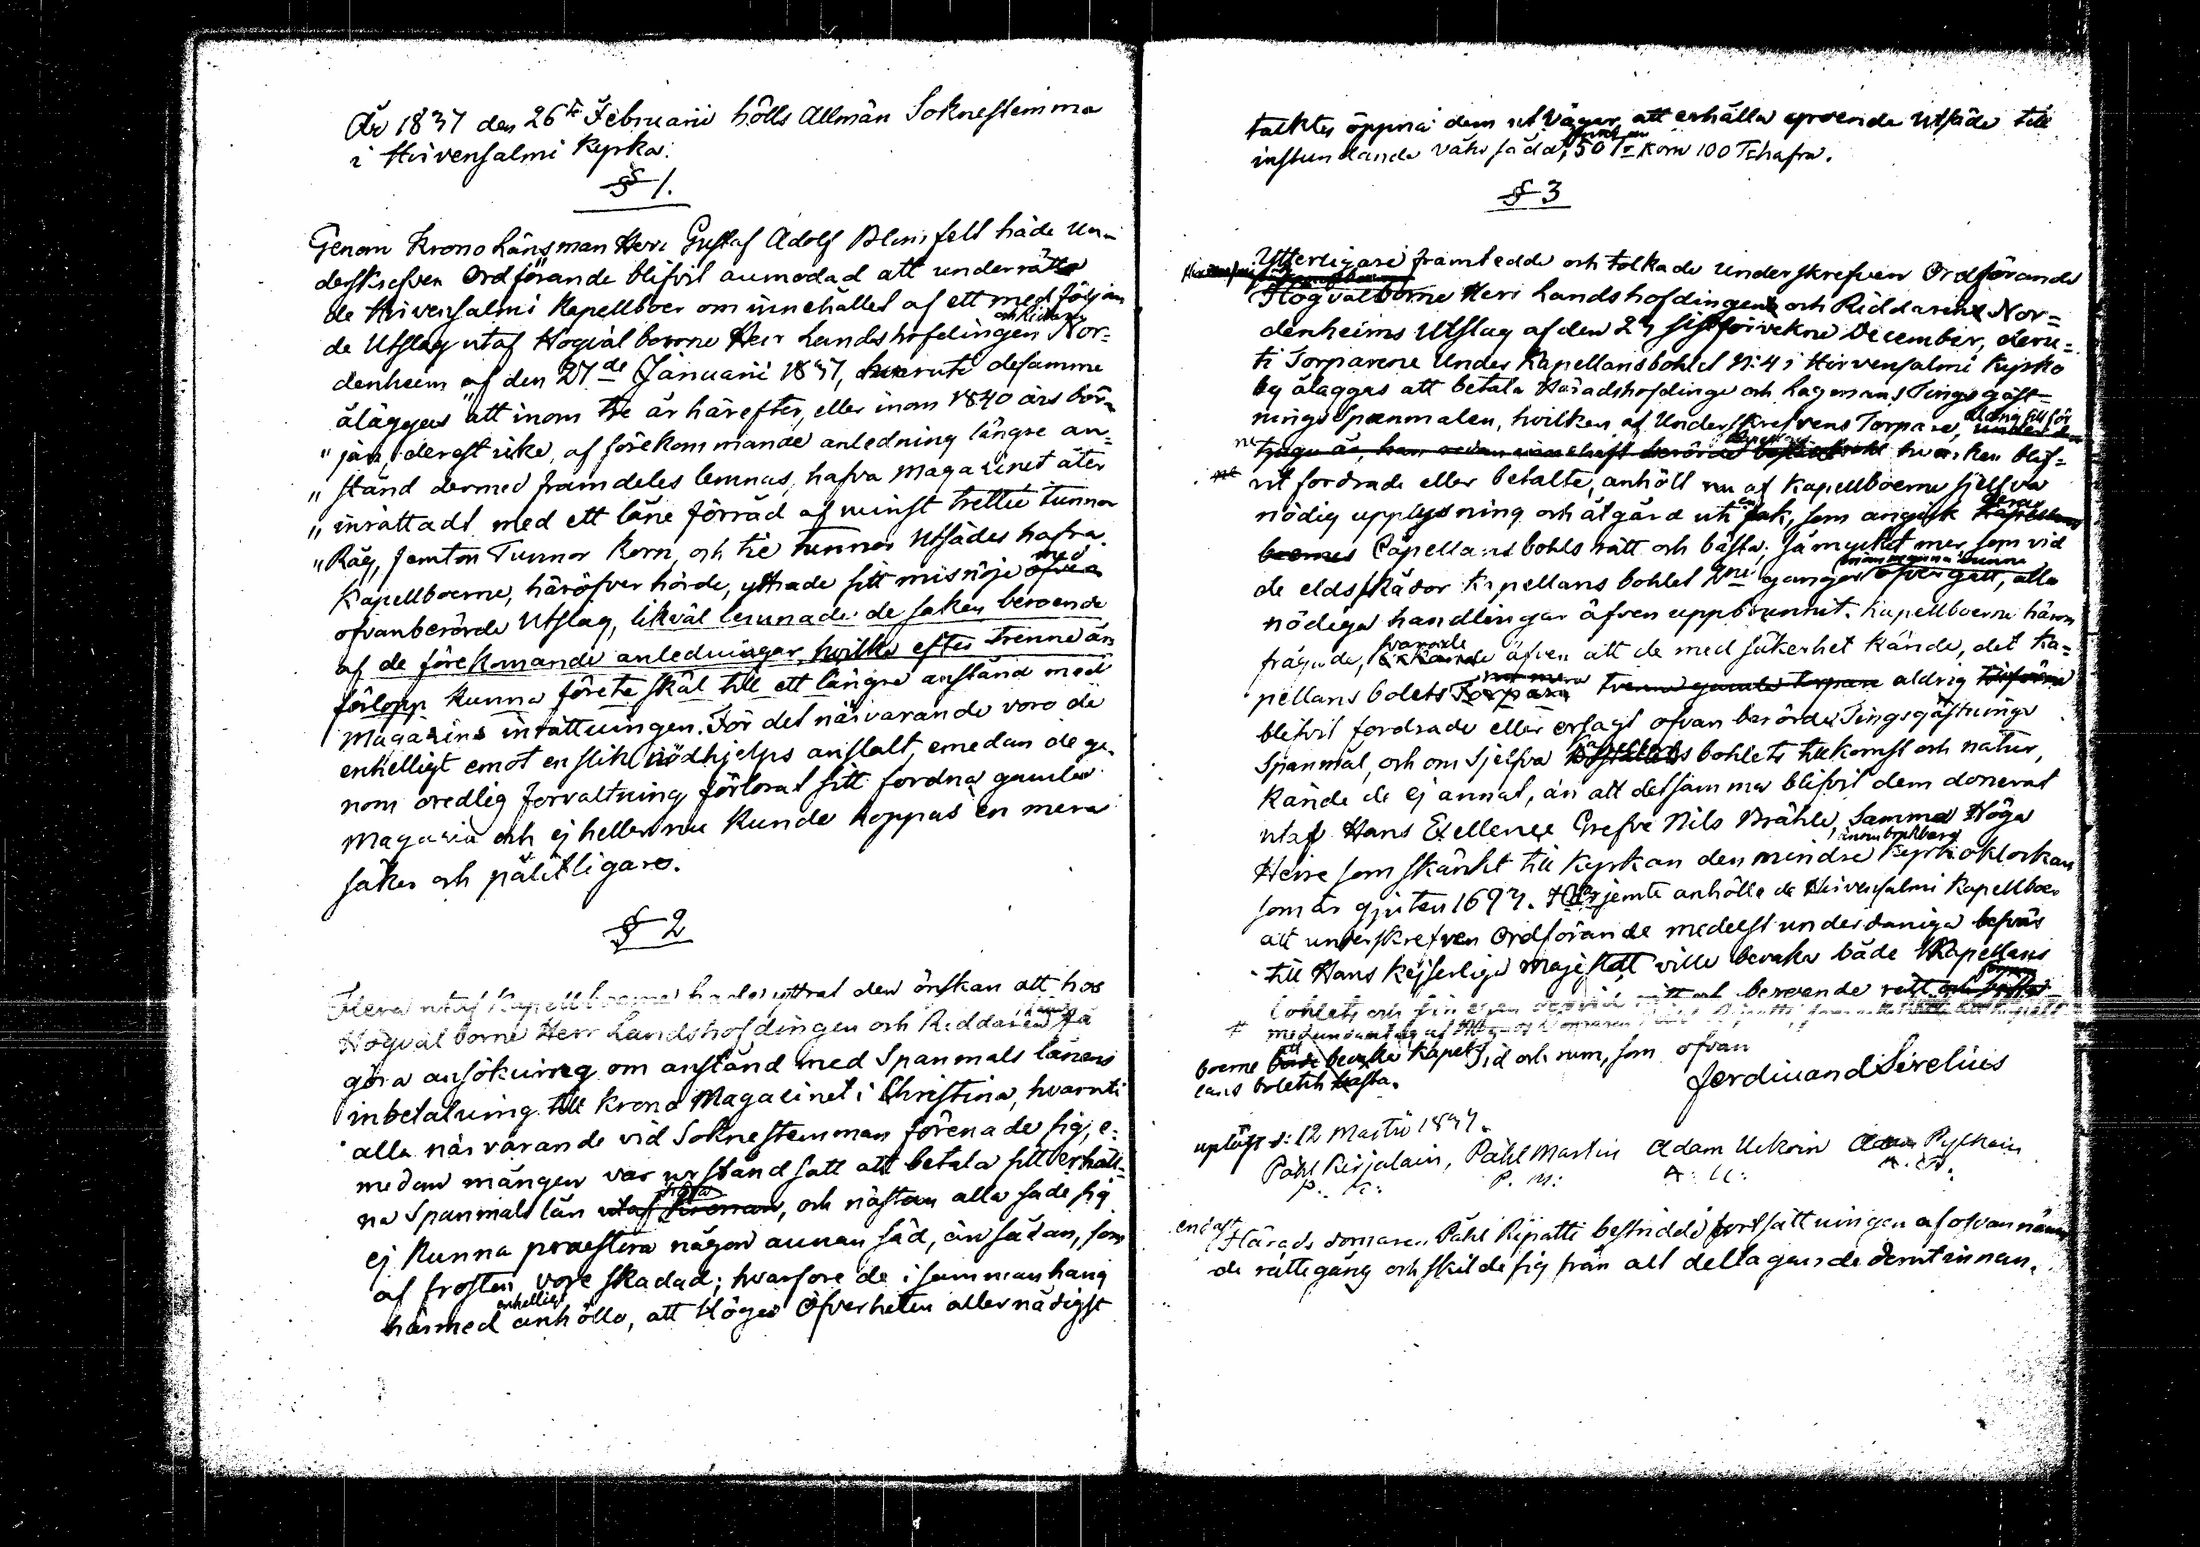 År 1837 den 26te Februarii hölls Allmän Soknestemma
i Hirvensalmi Kyrka.
§ 1.
Genom Krono Länsman Herr Gustaf Adolf Blomfelt hade un-
derskrefven Ordförande blifvit anmodad att underrätta
de Hirvensalmi Kapellboer om innehållet af ett medföljan
de Utslag utaf Högvälborne Herr Landshöfdingen Nor=
denheim af den 27de Januarii 1837, hvarute desamme
åläggas "att inom tre år härefter, eller inom 1840 års bör-
"jan, derest icke, af förekommande anledning längre an=
"stånd dermed framdeles lemnas, hafva Magazinet åter
"inrättadt med ett låne förråd af minst trettie tunnor
"Råg, femton Tunnor Korn, och tie tunnor Utsädes hafra.
Kapellboerne, häröfver hörde, yttrade sitt misnöje med
ofvanberörde Utslag, likväl lemnade de saken beroende
af de förekomande anledningar, hvilka efter trenne års
förlopp kunna förete skäl till ett längre anstånd med
Magazins inrättningen. För det närvarande voro de
enhelligt emot en slik nödhjelps anstalt, emedan de ge-
nom oredlig forvaltning förlorat sitt fordna gamla
Magazin och ej heller nu kunde hoppas en mera
säker och pålitligare.
§ 2
Flera utaf Kapellboerne hade yttrat den önskan att hos
Högvälborne Herr Landshöfdingen och Riddaren få
göra ansökning om anstånd med Spanmåls lånens
inbetalning till Krono Magazinet i Christina, hvaruti
alla närvarande vid Soknestemman förenade sig, e=
medan mången var ur stånd satt att betala sitt erhåll=
na Spanmåls lån, och nästan alla sade sig
ej kunna praestera någon annan säd, än sådan, som
af frosten vore skadad; hvarfore de i sammanhang
härmed enhelligt anhöllo, att Höga Öfverheten allernådigst
täcktes öppna dem utvägar att erhålla groende Utsäde till
instundande vårs säda, 50 Tr korn 100 Tr hafra.
§ 3
Ytterligare framtedde och tolkade underskrefven Ordförande
Högvälborne Herr Landshöfdingens och Riddarens Nor=
denheims Utslag af den 27 sistförvekne December, deru=
ti Torparene under Kapellansbohlet N:4 i Hirvensalmi Kyrko
by ålaggas att betala Häradshöfdinge och Lagmans Tings gäst=
nings Spanmålen, hvilken af Underskrefvens Torpare,
hvarken blif=
vit fordrade eller betalte, anhöll nu af Kapellboerne sjelfva
nödig upplysning och åtgärd uti en sak, som angick deras
Capellansbohls rätt och bästa; så mycket mer som vid
de eldskådor Kapellans bohlet gånger öfvergått, alla
nödiga handlingar äfven uppbrunnit. Kapellboerne härom
frågade, svarade äfven att de med säkerhet kände, det Ka=
pellans bolets Torpare aldrig
blifvit fordrade eller ersagt ofvan berörde Tingsgästnings
Spanmål, och om sjelfva bohlets tillkomst och natur,
kände de ej annat, än att detsamma blifvit dem donerat
utaf Hans Exellence Grefve Nils Brähe, Samma Höga
Herre som skänkt till Kyrkan den mindre Kyrkoklockan
som är gjuten 1697. Härjemte anhölle de Hirvensalmi Kapellboer
att underskrefven Ordförande medelst underdåniga besvär
till Hans Kejserliga Majestät ville bevaka både Kapellans
bohlets och sin egen rätt
boerne
Tid och rum, som ofvan
Ferdinand Sirelius
uplöst d: 12 Martii 1837.
Påhl Kirjalain, Påhl Martin Adam Ukoin Adam Pylkain
P. K: P. M: A. U: A. P.
Härads domaren Påhl Ripatti bestridde fortsättningen af ofvannämn
de rättegång och skilde sig från allt deltagande derutinnan.